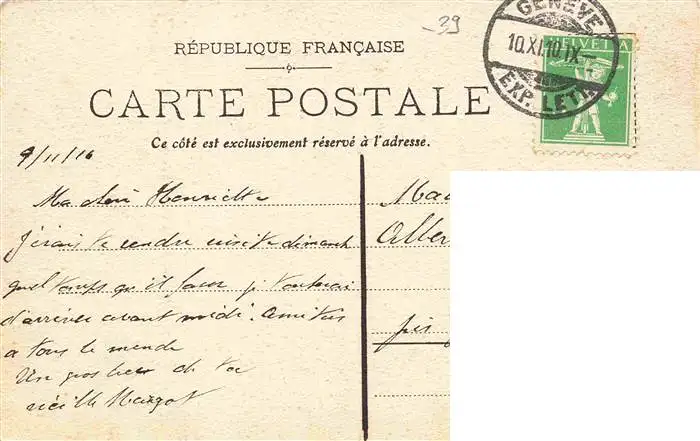 39
RÉPUBLIQUE FRANÇAISE
CARTE POSTALE
Ce côté est exclusivement réservé à l'adresse.
GENÈVE
10.XI.10.IX-
EXP. LETT.
HELVETIA
9/11/10
Ma chère Henriette
J'irai te rendre visite dimanch
quel temps qu'il fasse j
d'arriver avant midi. Amitiés
à tous le monde
Un gros de ta
vieille Margot
Ma
Alber